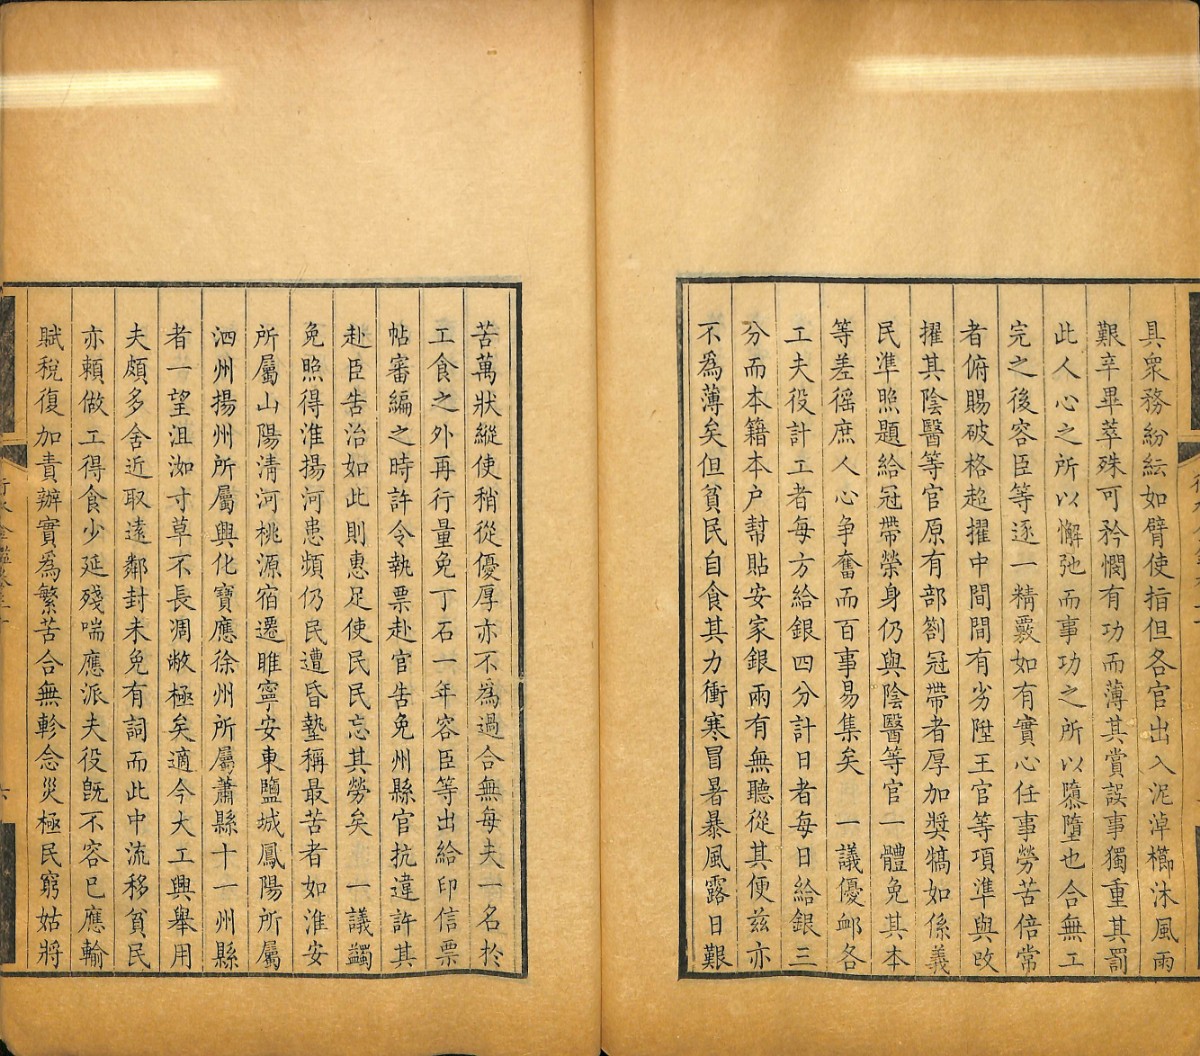 具衆務紛紜如臂使指但各官出入泥淖櫛沐風雨
艱辛畢萃殊可矜憫有功而薄其賞誤事獨重其罰
此人心之所以懈弛而事功之所以隳墮也合無工
完之後容臣等逐一精覈如有實心任事勞苦倍常
者俯賜破格超擢中間間有劣陞王官等項準與改
擢其陰醫等官原有部劄冠帶者厚加奬犒如係義
民準照題給冠帶榮身仍與陰醫等官一體免其本
等差徭庶人心争奮而百事易集矣 一議優䘏各
工夫役計工者每方給銀四分計日者每日給銀三
分而本籍本户幫貼安家銀兩有無聽從其便茲亦
不為薄矣但貧民自食其力衝寒冒暑暴風露日艱
苦萬狀縱使稍從優厚亦不為過合無每夫一名於
工食之外再行量免丁石一年容臣等出給印信票
帖審編之時許令執票赴官告免州縣官抗違許其
赴臣告治如此則惠足使民民忘其勞矣 一議蠲
免照得淮揚河患頻仍民遭昏墊稱最苦者如淮安
所屬山陽清河桃源宿遷睢寧安東鹽城鳳陽所屬
泗州揚州所屬興化寶應徐州所屬蕭縣十一州縣
者一望沮洳寸草不長凋敝極矣適今大工興舉用
夫頗多舍近取遠鄰封未免有詞而此中流移貧民
亦賴做工得食少延殘喘應派夫役旣不容已應輸
賦稅復加責辦實爲繁苦合無軫念災極民窮姑將
行水金鑑卷三十
六